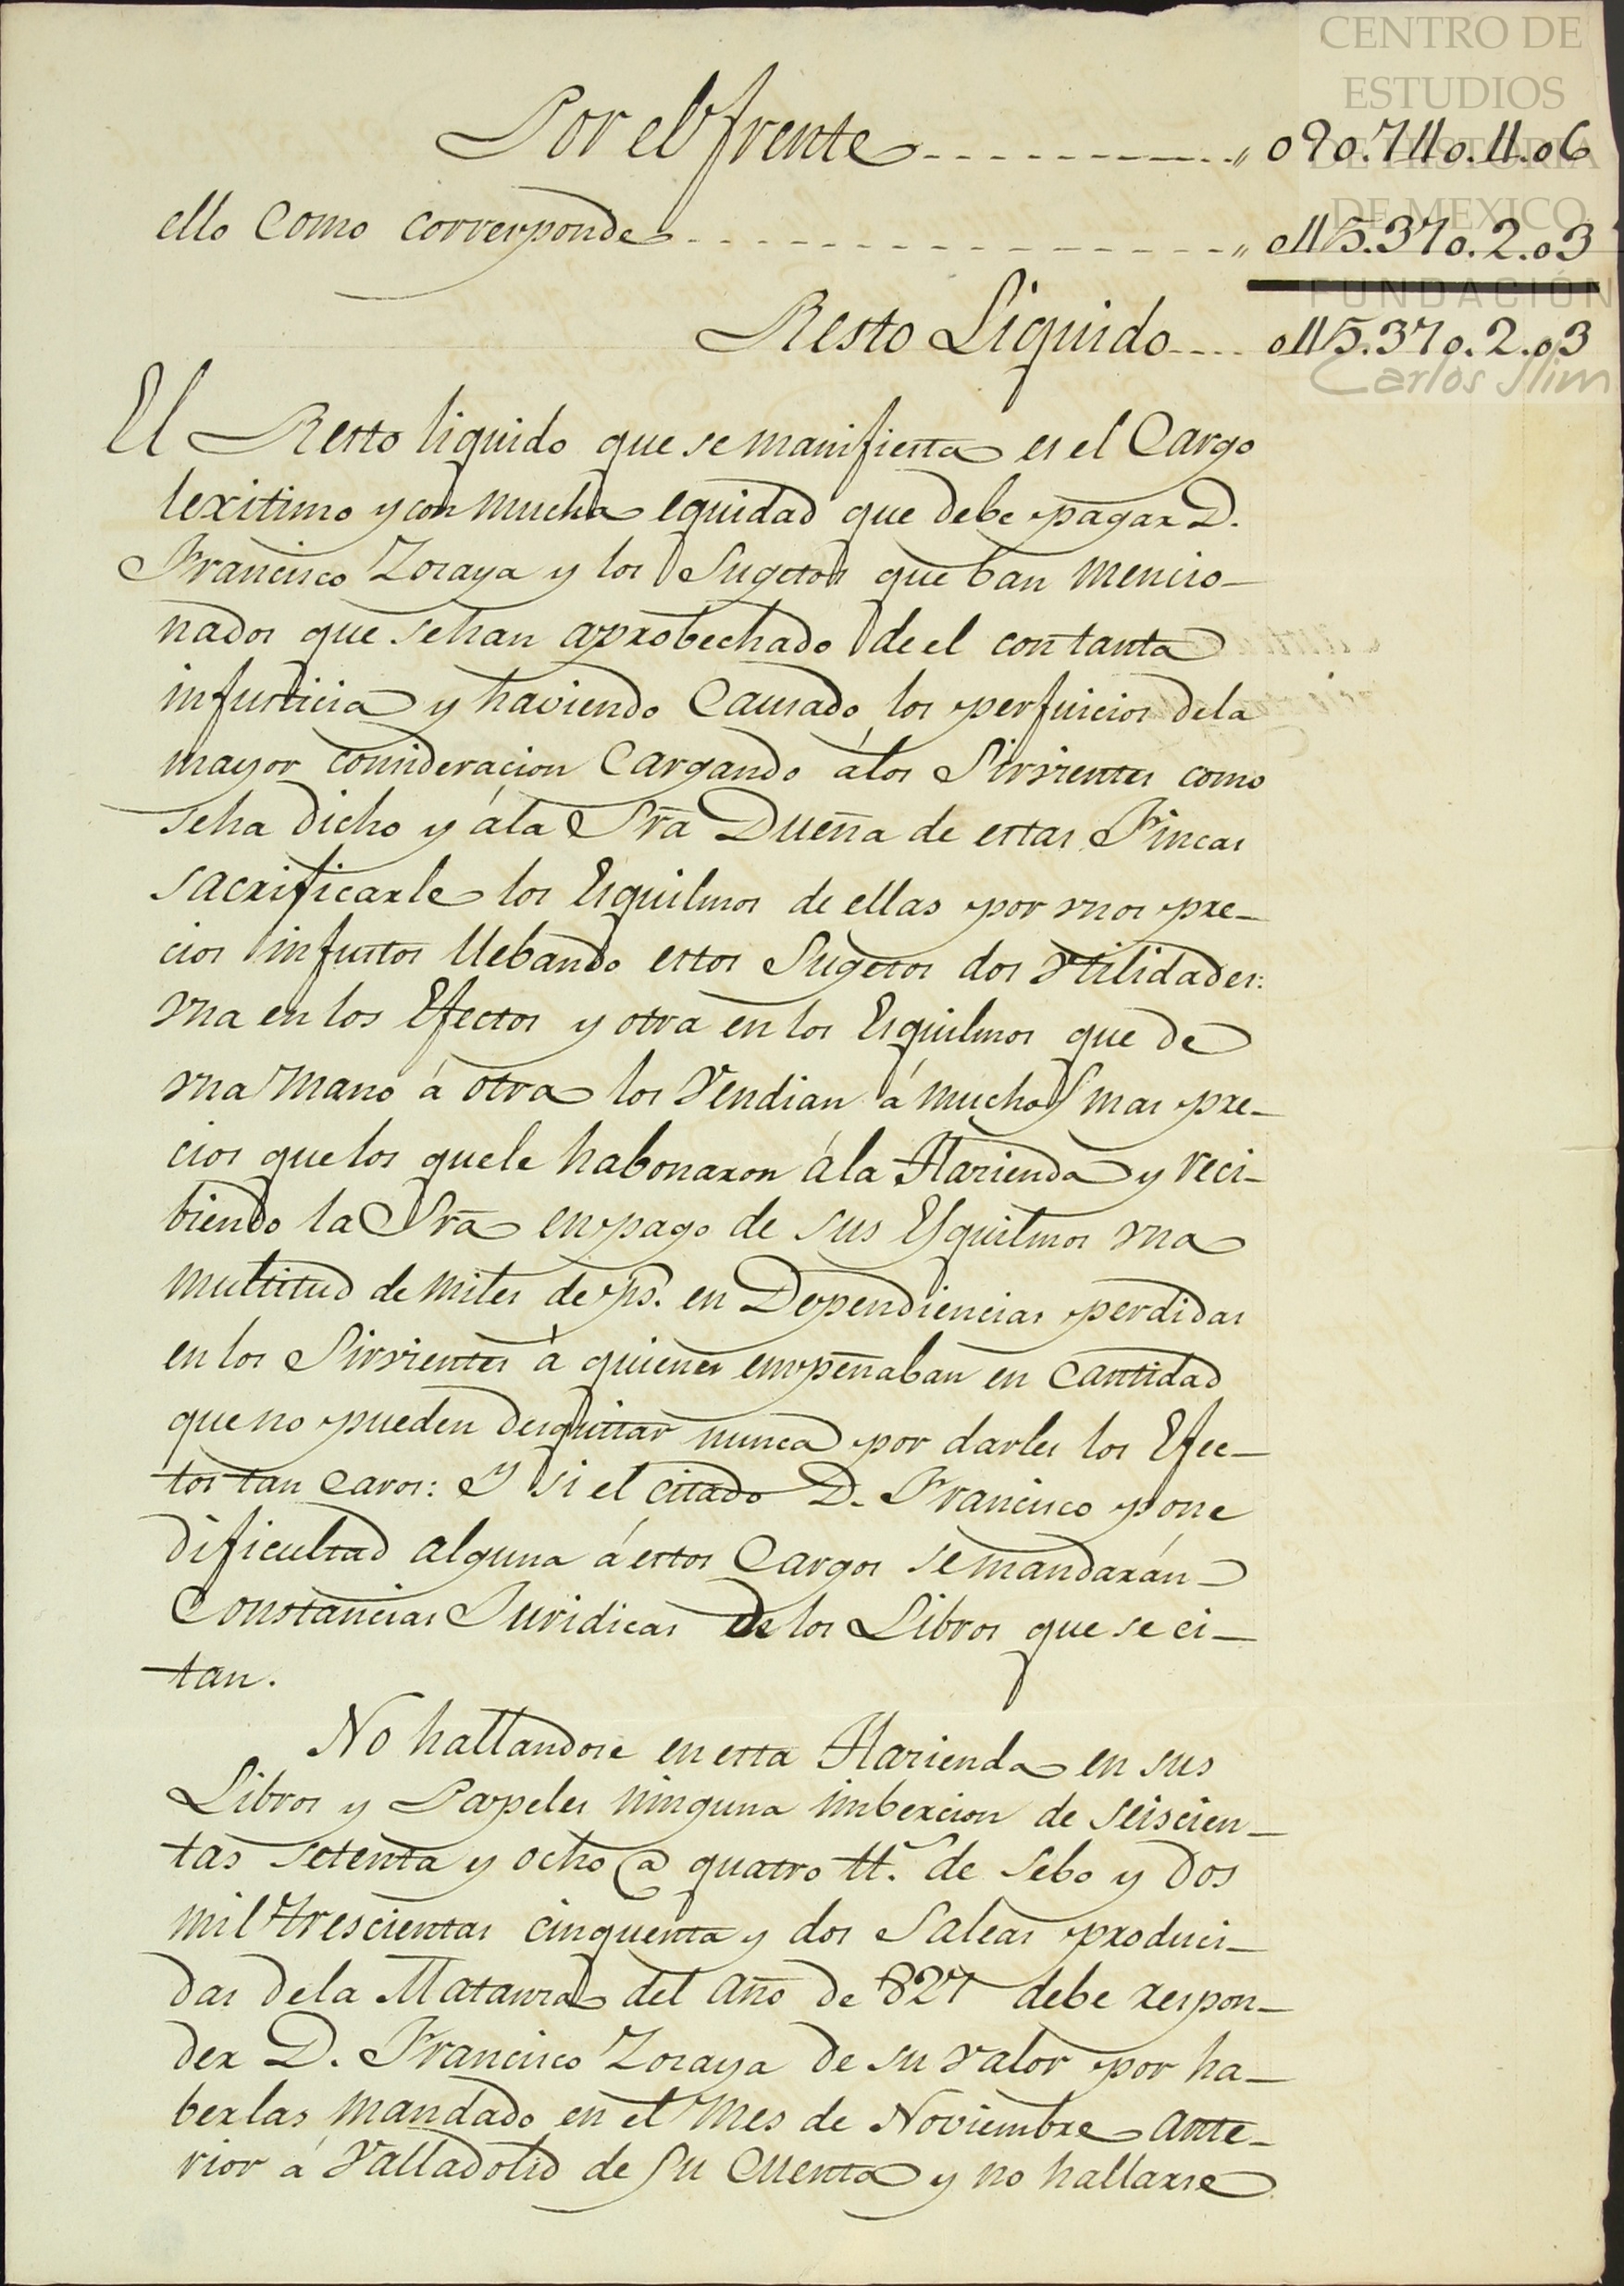 CENTRO DE
ESTUDIOS
DE HISTORIA
DE MEXICO
FUNDACIÓN
Carlos Slim
Por el frente ,, 090.740.11.06
ello Como corresponde ,, 045.370.2.03
Resto Liquido 045.370.2.03
El Resto liquido que se manifiesta es el Cargo
lexitimo y con mucha equidad que debe pagar D.
Francisco Zoraya y los Sugetos que ban mencio-
nados que se han aprobechado de el con tanta
injusticia y haviendo Causado los perjuicios de la
mayor consideracion Cargando á los Sirvientes como
se ha dicho y á la Srã Dueña de estas Fincas
sacrificarle los Esquilmos de ellas por vnos pre-
cios injustos llebando estos Sugetos dos vtilidades:
vna en los Efectos y otra en los Esquilmos que de
vna mano á otra los Vendian á muchos mas pre-
cios que los que le habonaron á la Hazienda y reci-
biendo la Srã en pago de sus Esquilmos vna
multitud de miles de ps. en Dependiencias perdidas
en los Sirvientes á quienes empeñaban en Cantidad
que no pueden desquitar nunca por darles los Efec-
tos tan Caros: Y si el citado D. Francisco pone
dificultad alguna á estos Cargos se mandarán
Constancias Juridicas de los Libros que se ci-
tan.
No hallandose en esta Hazienda en sus
Libros y Papeles ninguna imbercion de seiscien-
tas setenta y ocho @ quatro lt. de Sebo y dos
mil trescientas cinquenta y dos Saleas produci-
das de la Matanza del año de 827 debe respon-
der D. Francisco Zoraya de su valor por ha-
berlas mandado en el mes de Noviembre ante-
rior á Valladolid de su Cuenta y no hallarse